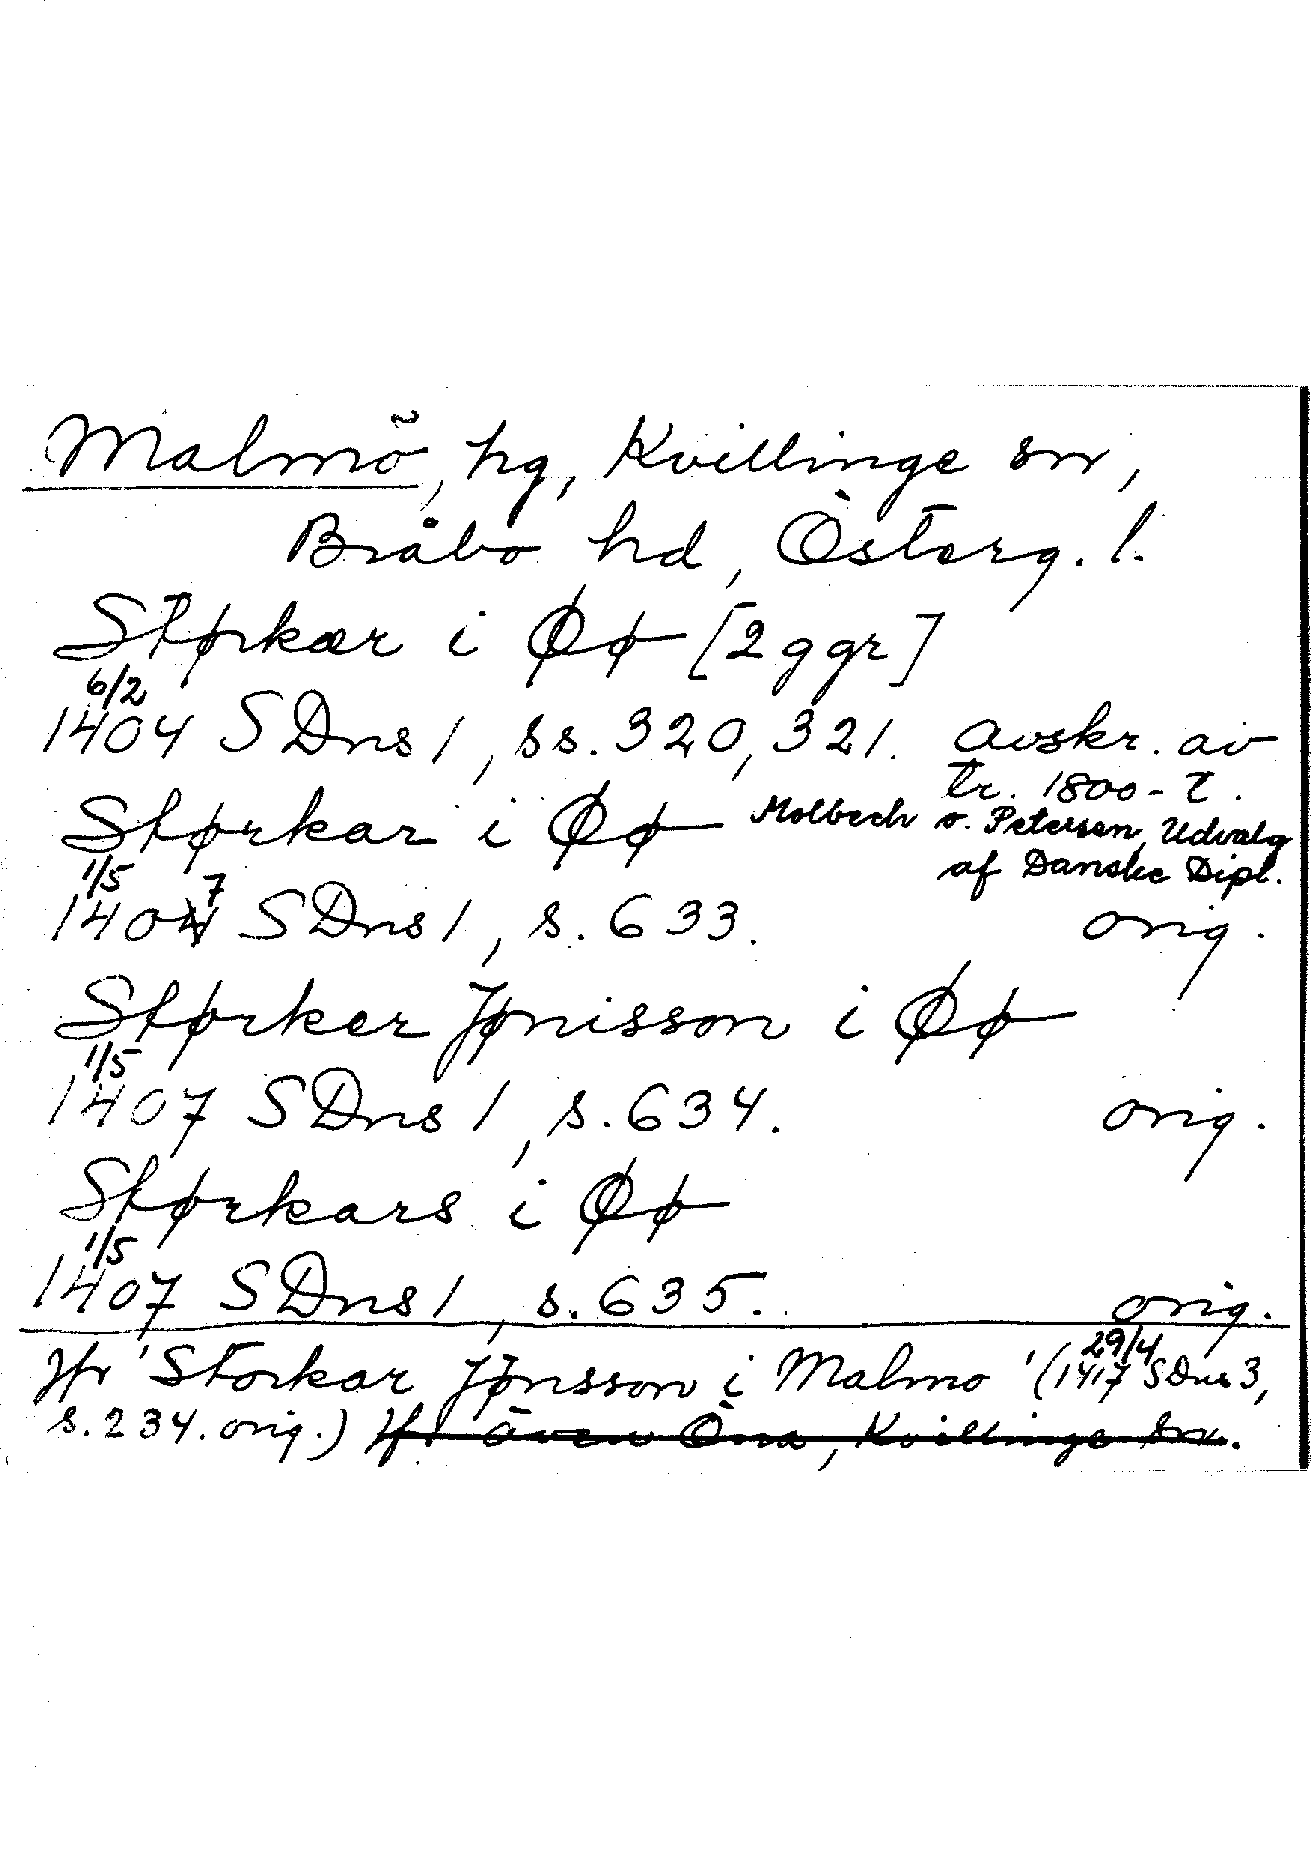 Malmö, hg, Kvillinge sn,
Bråbo hd, Österg. l.
Størkær i Øø [2 ggr]
6/2
1404 SDns 1, ss. 320, 321. avskr. av
tr. 1800-t.
Størkar i Øø Molbech o. Petersen, Udvalg
af Danske Dipl.
1/5
1407 SDns 1, s. 633. orig.
Størker Jønisson i Øø
1/5
1407 SDns 1, s. 634. orig.
Størkars i Øø
1/5
1407 SDns 1, s. 635. orig.
29/4
Jfr 'Storkar Jønsson i Malmo' (1417 SDns 3,
s. 234. orig.) Jfr även Öna, Kvillinge sn.